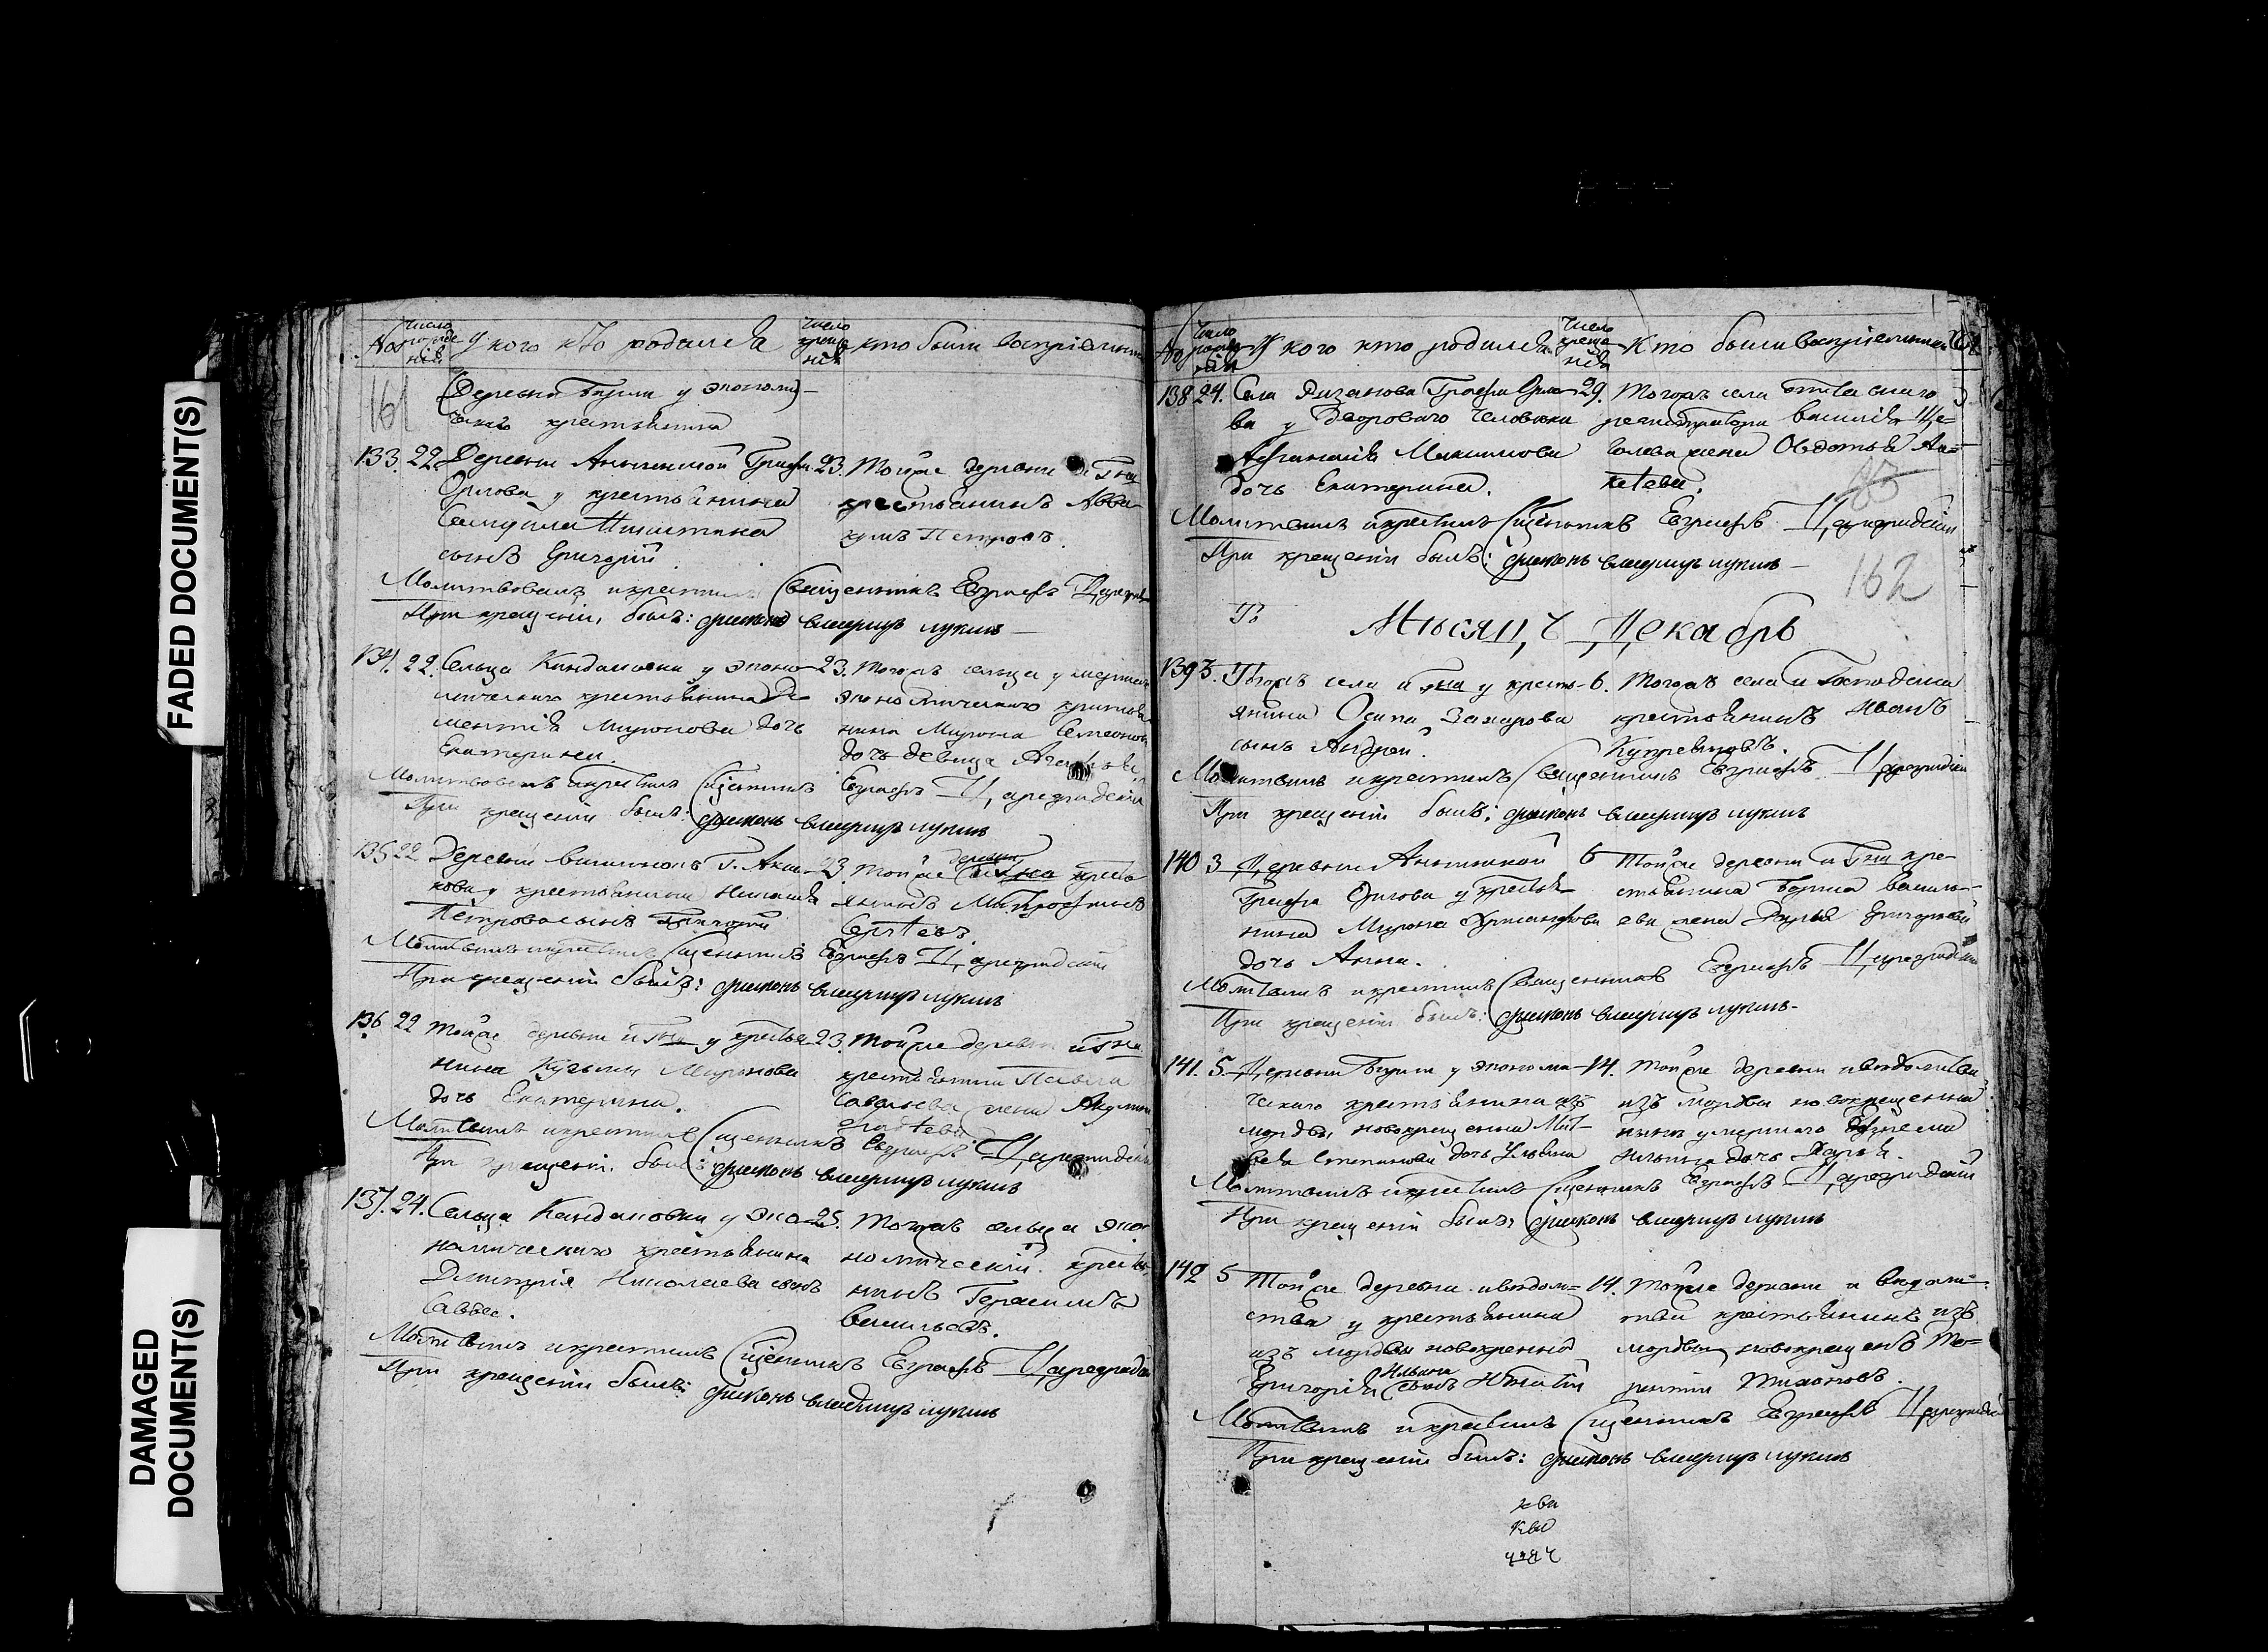 FADED DOCUMENT(S)
DAMAGED
DOCUMENT(S)
No
число
рожде
нія
У кого кто родился
число
креще
нія
кто были воспріемники
161
(Деревни у экономи)
ческаго крестьянина
133. 22. Деревни Графа
Орлова у крестьянина
Самуила
сынъ Григорій
23. Тойже деревни и Гна
крестьянинъ Авва
кумъ Петровъ
Молитвовалъ и крестилъ Священникъ Евграфъ Цареградскій
При крещеніи былъ: дьяконъ владимиръ лукинъ
134. 22. Сельца Кандаловки у эконо
мическаго крестьянина Де
ментія Миронова дочь
Екатерина.
23. Тогожъ сельца умершаго
экономическаго крестья
нина Мирона Семенова
дочь девица
Молитвовалъ и крестилъ Священникъ Евграфъ Цареградскій
При крещеніи былъ: дьяконъ владимиръ лукинъ
135 22 Деревни Г.
у крестьянина
Петрова сынъ Григорій
23. Тойже деревни и Гна кресть
янинъ Митрофанъ
Сергѣевъ.
Молитвовалъ и крестилъ Священникъ Евграфъ Цареградскій
При крещеніи былъ: дьяконъ владимиръ лукинъ
136 22 Тойже деревни и Гна у крестья
нина Кузьмы Миронова
дочь Екатерина.
23. Тойже деревни и Гна
крестьянина Павла
Савельева жена
Молитвовалъ и крестилъ Священникъ Евграфъ Цареградскій
При крещеніи былъ: дьяконъ владимиръ лукинъ
137. 24. Сельца Кандаловки у эко
номическаго крестьянина
Дмитрія Николаева сынъ
Савва.
25. Тогожъ сельца эко
номическій кресть
нинъ Герасимъ
Васильевъ.
Молитвовалъ и крестилъ Священникъ Евграфъ Цареградскій
При крещеніи былъ: дьяконъ владимиръ лукинъ
No
число
рожде
нія
У кого кто родился
число
креще
нія
Кто были воспріемники
138 24. Села Графа Орло
ва у дворового человека
Афанасія Максимова
дочь Екатерина.
29. Тогожъ села
регистратора Василія Ще
голева жена Овдотья
83
Молитвовалъ и крестилъ Священникъ Евграфъ Цареградскій
При крещеніи былъ: дьяконъ владимиръ лукинъ
162
Мѣсяцъ Декабрь
139 3. Тогожъ села и Гна у кресть
янина Осипа Захарова
сынъ Андрей.
6. Тогожъ села и Господина
крестьянинъ Иванъ
Молитвовалъ и крестилъ Священникъ Евграфъ Цареградскій
При крещеніи былъ: дьяконъ владимиръ лукинъ
140 3 Деревни
Графа Орлова у крестья
нина Мирона
дочь Анна.
6 Тойже деревни и Гна кре
стьянина Бориса Василь
ева жена Дарья Григорьева
Молитвовалъ и крестилъ Священникъ Евграфъ Цареградскій
При крещеніи былъ: дьяконъ владимиръ лукинъ
141. 5. Деревни у экономи
ческаго крестьянина изъ
мордвы новокрещенна Мат
вея Степанова дочь Ульяна
14. Тойже деревни и ведомства
изъ мордвы новокрещенна
умершаго
Ильина дочь Дарья.
Молитвовалъ и крестилъ Священникъ Евграфъ Цареградскій
При крещеніи былъ: дьяконъ владимиръ лукинъ
142 5 Тойже деревни и ведом
ства у крестьянина
изъ мордвы новокрещенна
Григорія Ильина сынъ Игнатій
14. Тойже деревни и ведом
ства крестьянинъ изъ
мордвы новокрещенъ Те
рентій Тихоновъ.
Молитвовалъ и крестилъ Священникъ Евграфъ Цареградскій
При крещеніи былъ: дьяконъ владимиръ лукинъ